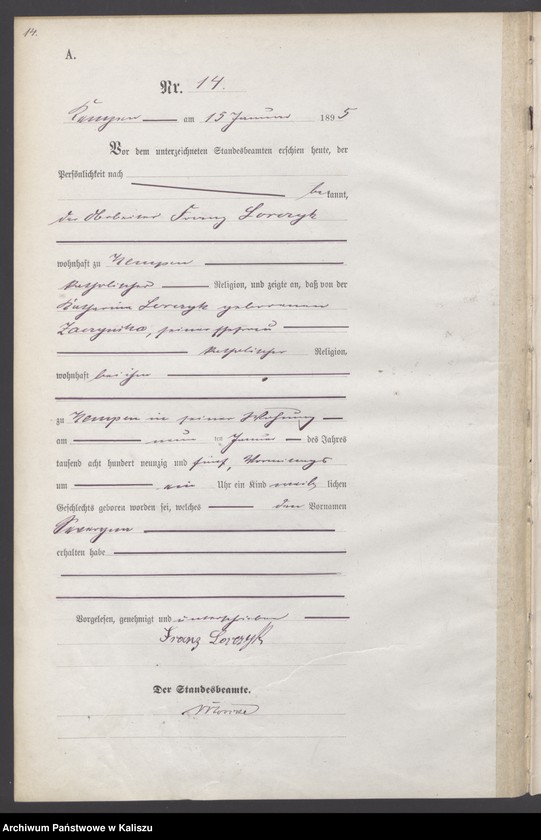 14.
A.
Nr. 14.
Kempen am 15 Januar 1895
Vor dem unterzeichneten Standesbeamten erschien heute, der
Persönlichkeit nach
bekannt,
der Arbeiter Franz Lorczyk
wohnhaft zu Kempen
katholischer Religion, und zeigte an, daß von der
Katharina Lorczyk geborenen
seiner Ehefrau
katholischer Religion,
wohnhaft bei ihm
zu Kempen in seiner Wohnung
am neun ten Januar des Jahres
tausend acht hundert neunzig und fünf, Vormittags
um ein Uhr ein Kind weib lichen
Geschlechts geboren worden sei, welches den Vornamen
erhalten habe
Vorgelesen, genehmigt und unterschrieben
Franz Lorczyk
Der Standesbeamte.
Archiwum Państwowe w Kaliszu